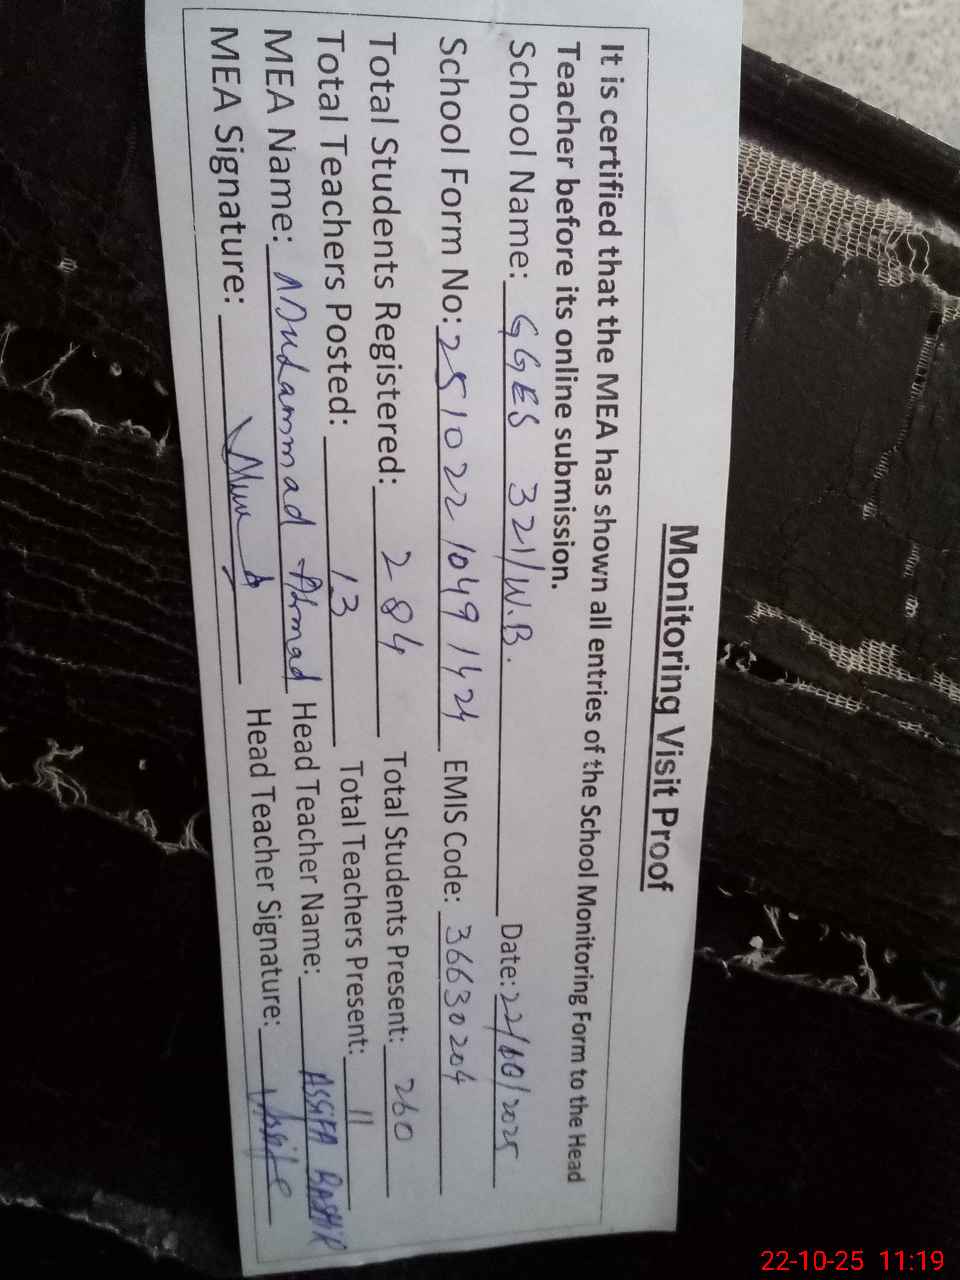 Monitoring Visit Proof
It is certified that the MEA has shown all entries of the School Monitoring Form to the Head
Teacher before its online submission.
School Name: GGES 321/W.B. Date: 22/10/2025
School Form No: 251022 1049 1424 EMIS Code: 36630204
Total Students Registered: 284 Total Students Present: 260
Total Teachers Posted: 13 Total Teachers Present: 11
MEA Name: Muhammad Ahmad Head Teacher Name: ASSIFA BASHIR
MEA Signature: Head Teacher Signature:
22-10-25 11:19